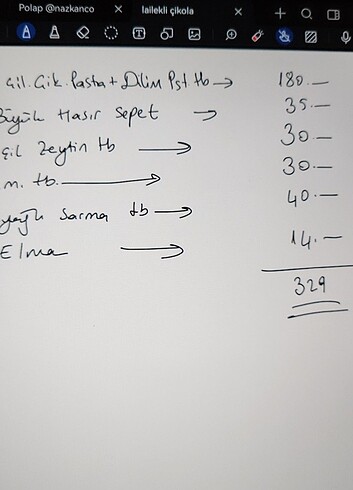 Polap @nazkanco × lailekli çikola ×
Çil. Çik. Pasta + Dilim Pst tb → 180.—
Büyük Hasır Sepet → 35.—
çil zeytin tb → 30.—
m. tb. → 30.—
Sarma tb → 40.—
Elma → 14.—
329